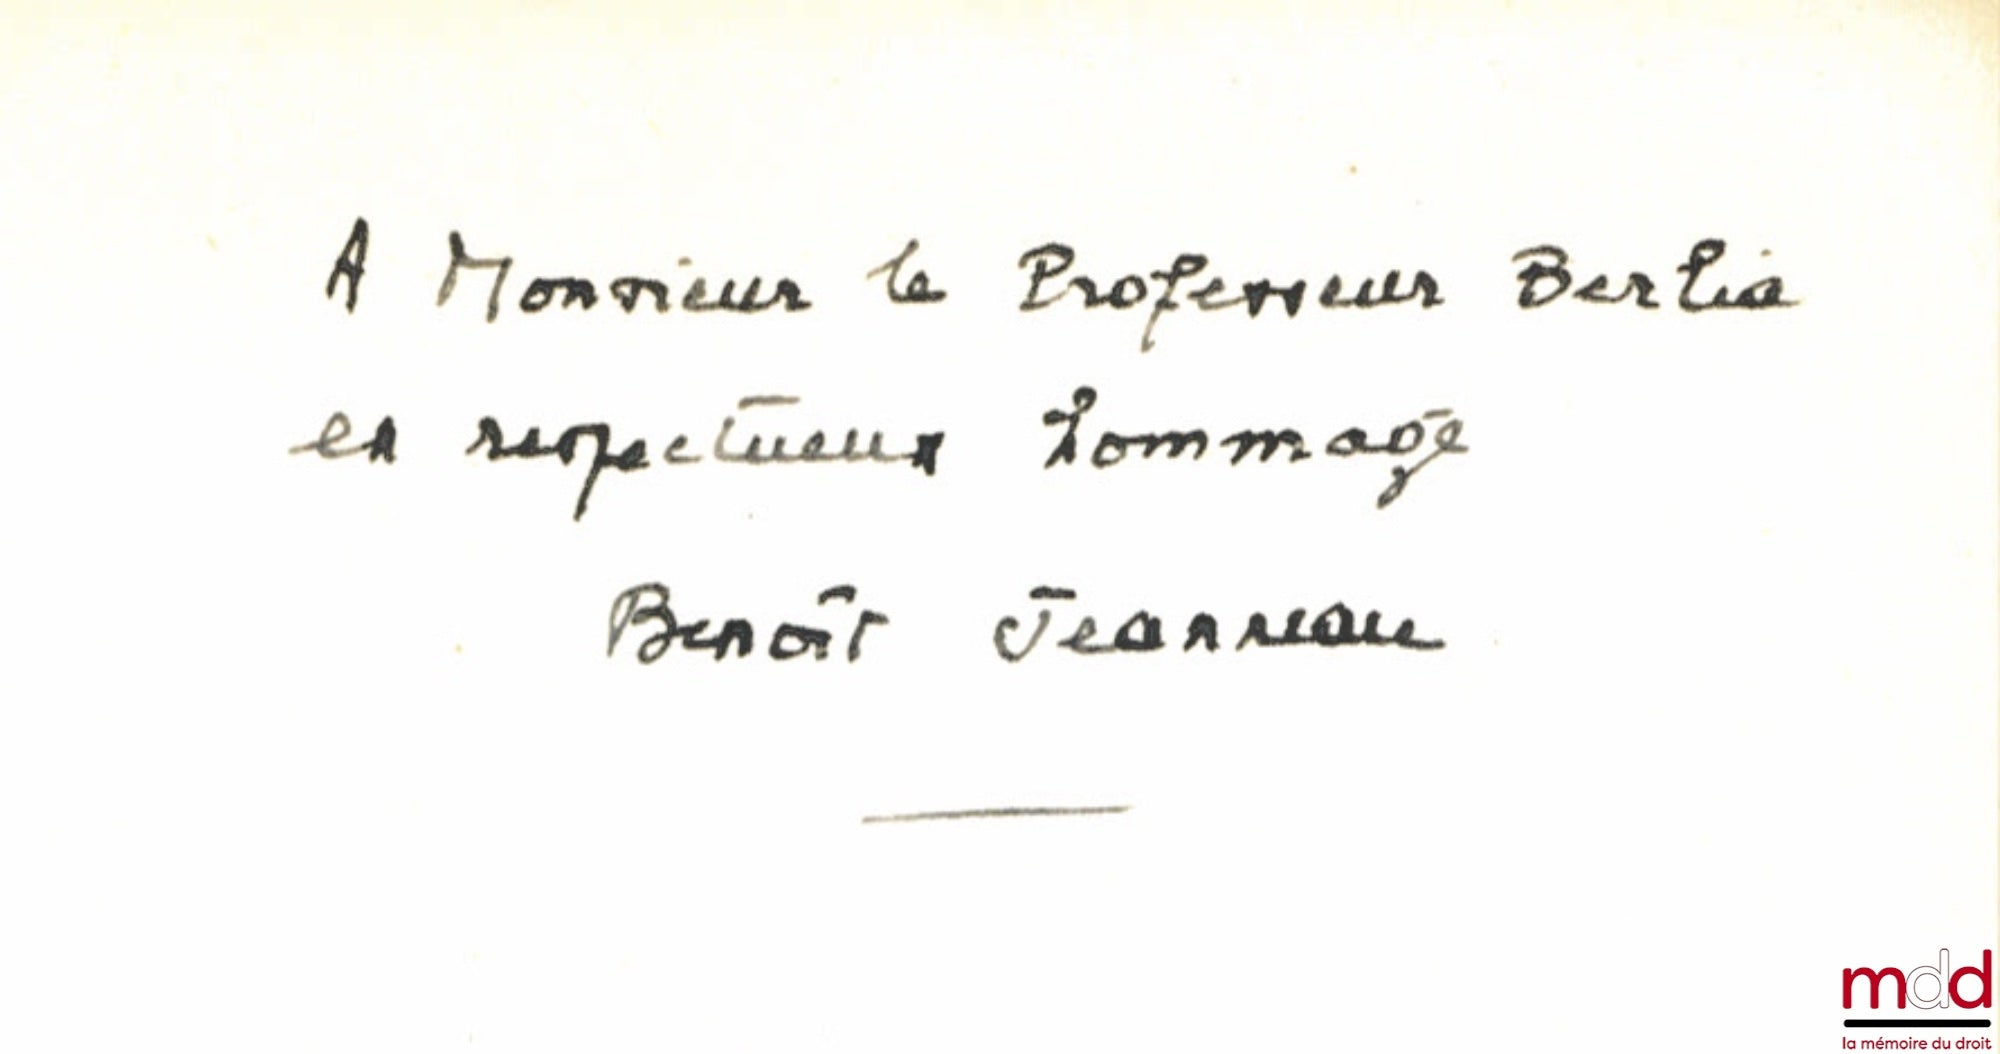 A Monsieur le Professeur Berlia
en respectueux hommage
Benoît Jeanneau
mdd
la mémoire du droit